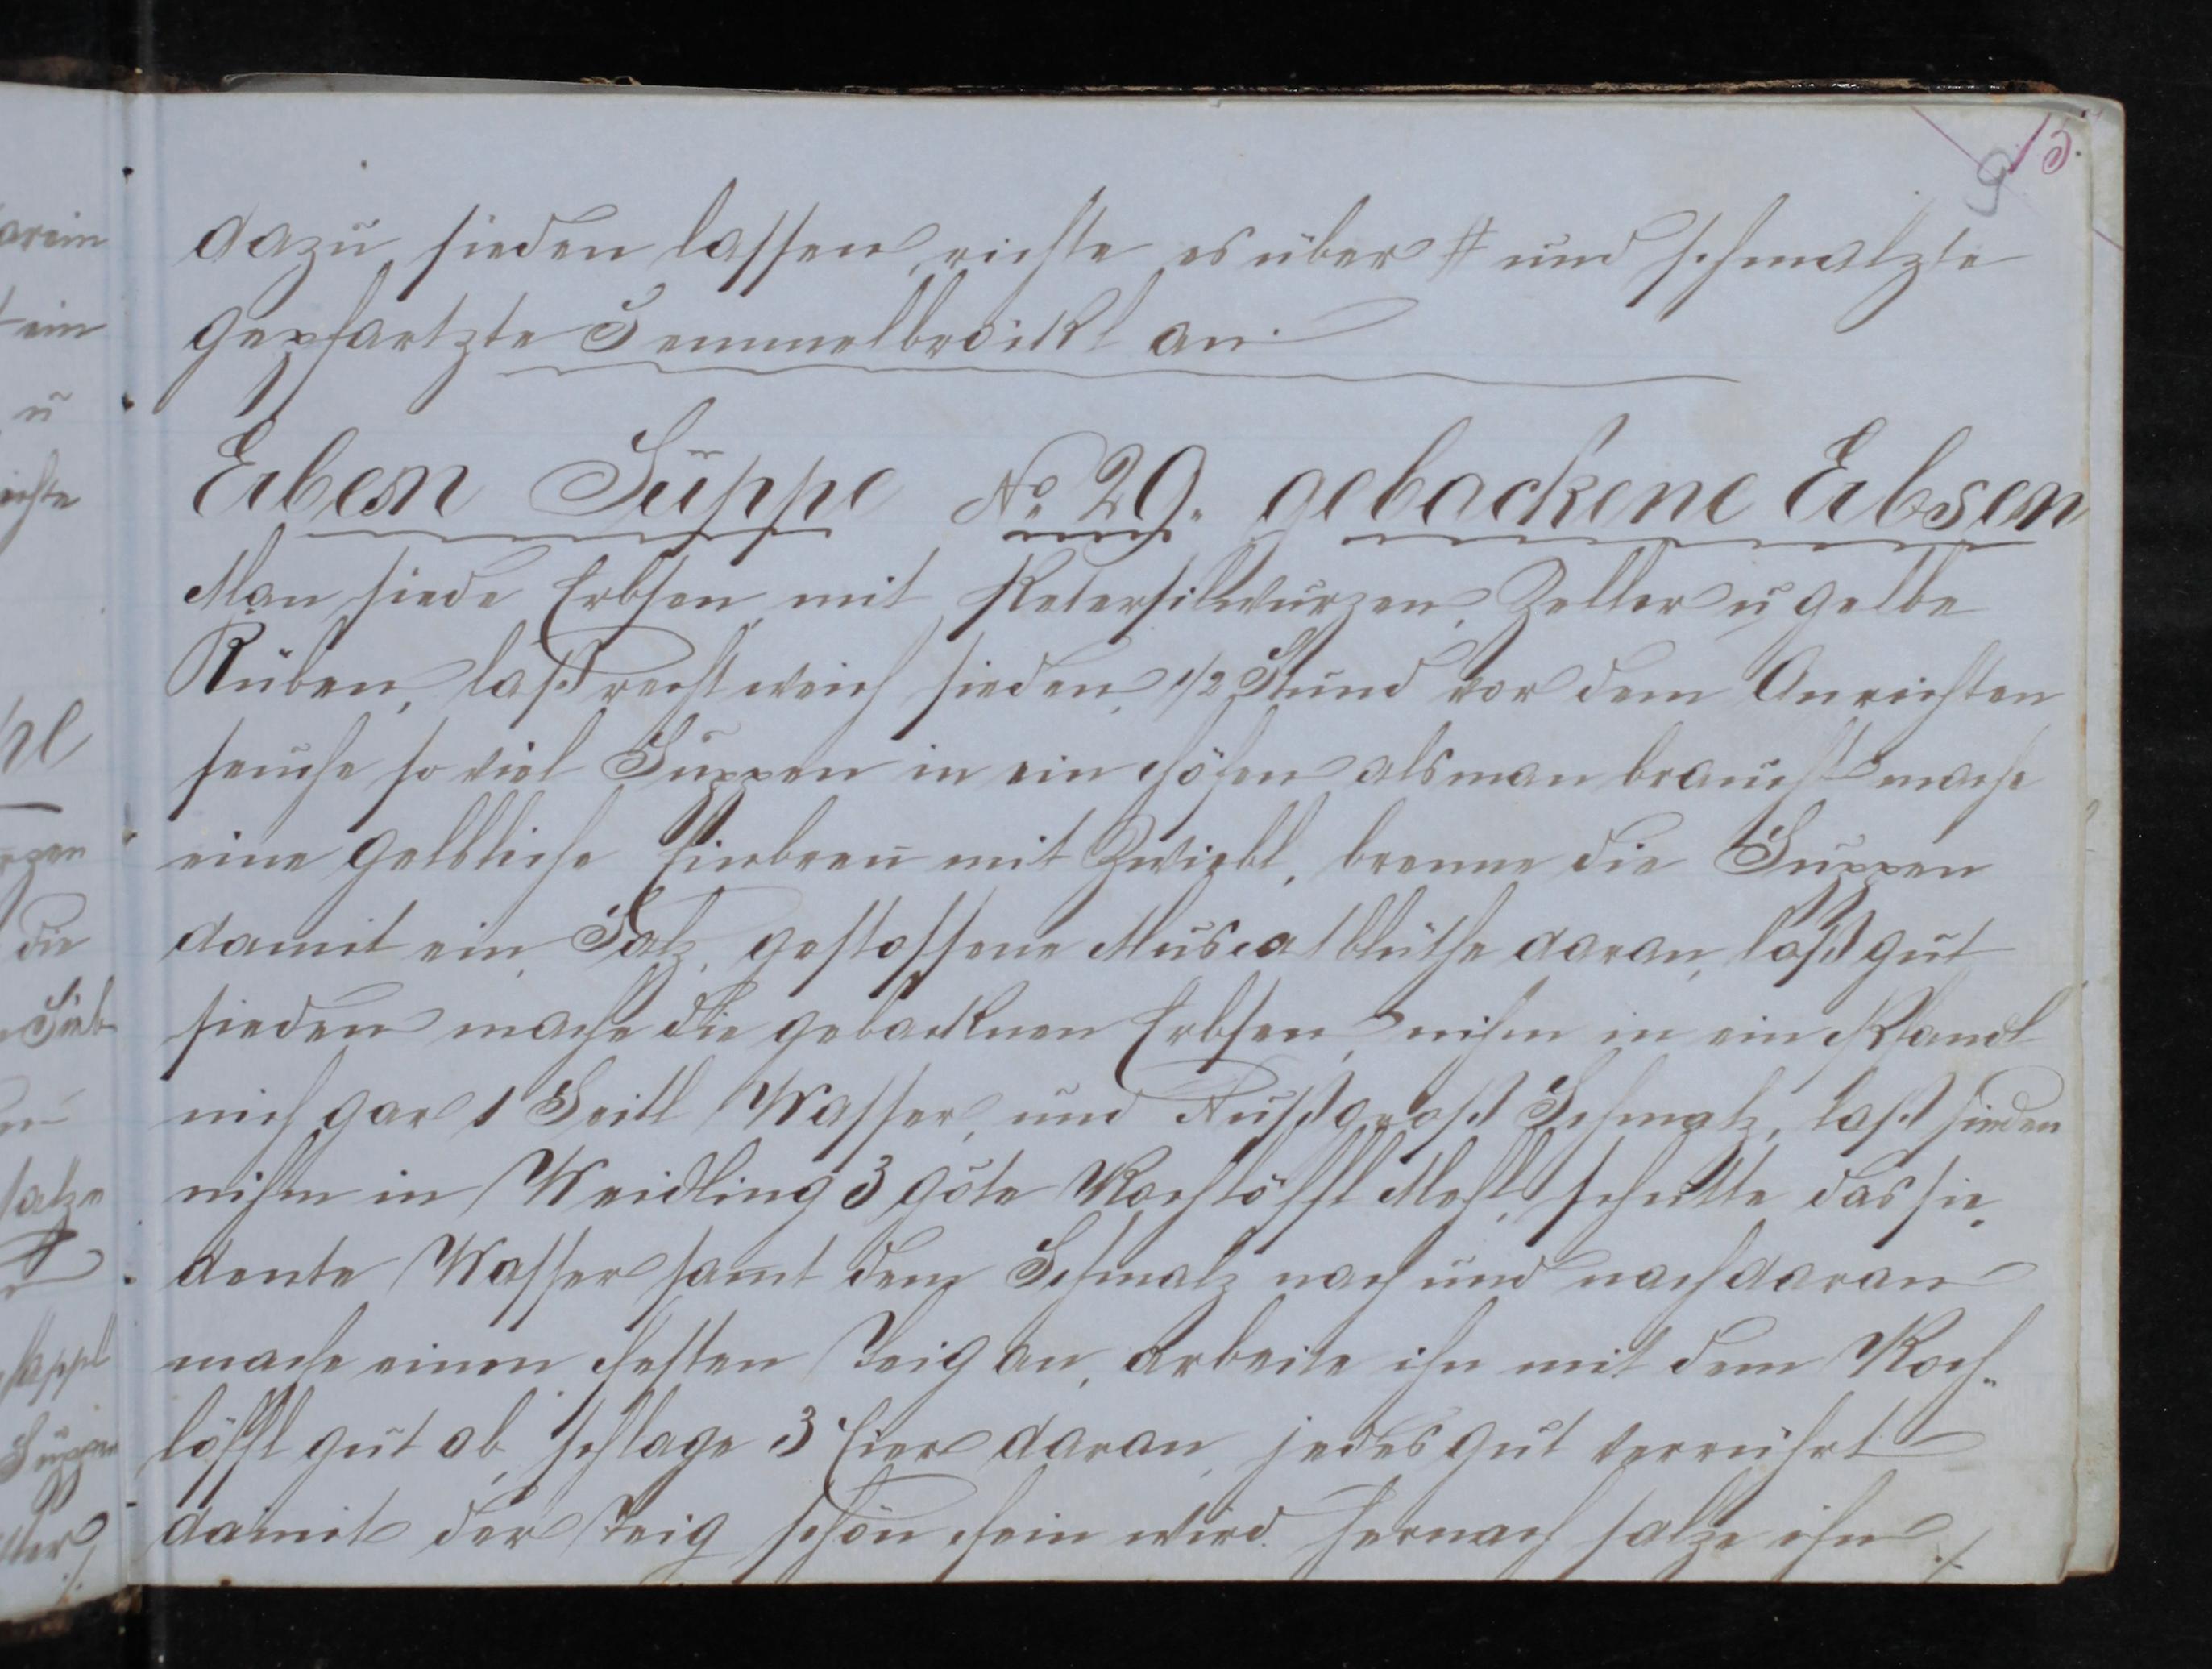 15.
9
dazu sieden lassen, richte es über # und schmalzte
gepfartzte Semmelbröckl an.
Erbsen Suppe No 29. gebackene Erbsen
Man siede Erbsen mit Petersilwurzen, Zeller u gelbe
Rüben, laß recht weich sieden, 1/2 Stund vor dem Anrichten
seuche so viel Suppen in ein Höfen als man braucht mache
eine gelbliche Einbren mit Zwiebl, brenne die Suppen
damit ein, Salz, gestossene Muscatblüthe daran, laß gut
sieden mache die gebacknen Erbsen, nihm in ein Pfandl
nich gar 1 Seitl Wasser, und Nußgroß Schmalz, laß sieden
nihm in Weidling 3 gute Kochlöffl Mehl, schütte das sie,
dente Wasser samt dem Schmalz nach und nach daran
mache einen festen Teig an, arbeite ihn mit dem Koch„
löffl gut ab, schlage 3 Eier daran, jedes gut verrührt
damit der Teig schön fein wird. hernach salze ihn ./.
arein
ein
u
ichte
rzen
die
Sieb
salze
Suppen